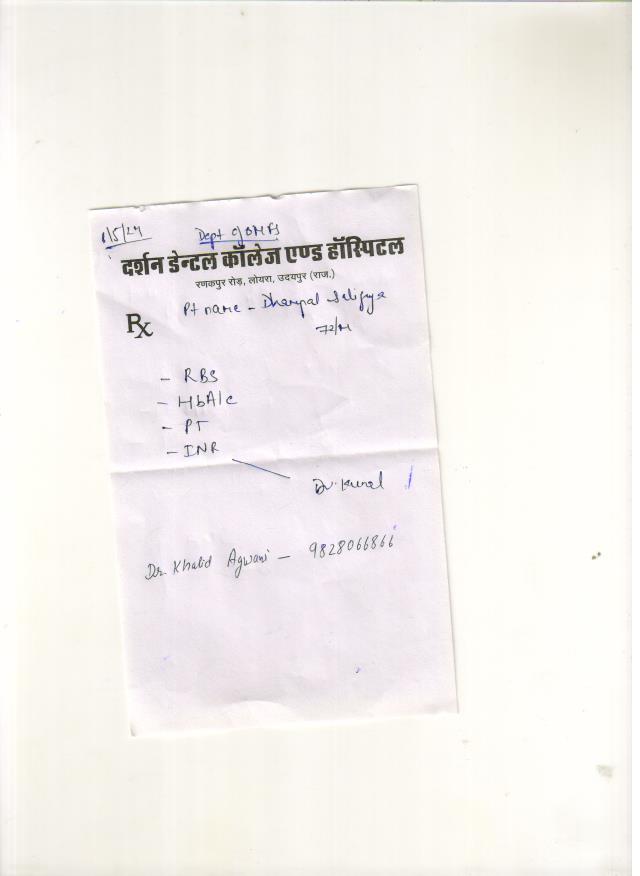 1/5/24 Dept of OMFS
दर्शन डेन्टल कॉलेज एण्ड हॉस्पिटल
रणकपुर रोड़, लोयरा, उदयपुर (राज.)
Rx Pt name - Dharmpal
72/M
- RBS
- HbA1c
- PT
- INR
Dr. Kunal
Dr. Khalid Agwani - 9828066866